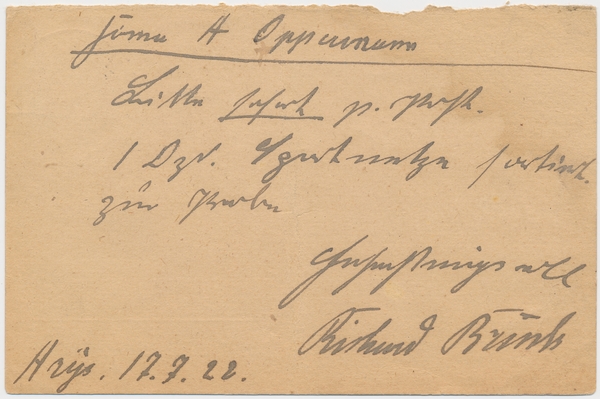 Firma A Oppmann
Bitte sofort p. Post.
1 Dzd. Sportnetze sortiert.
zur Probe
Hochachtungsvoll
Richard
Arys. 17.7.22.